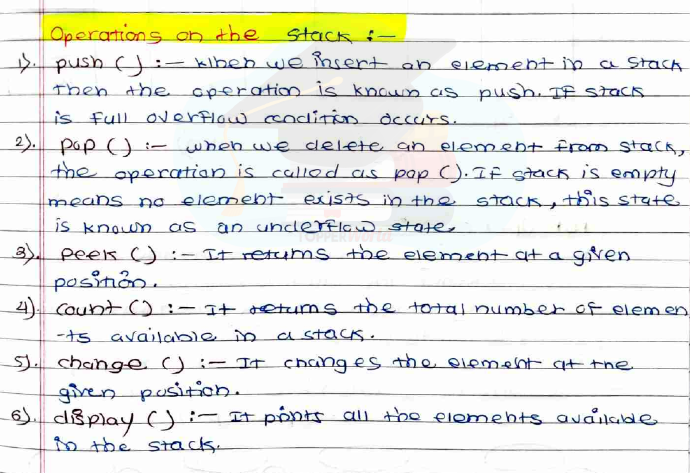 Operations on the stack :-
1). push () :- When we insert an element in a stack
then the operation is known as push. If stack
is full overflow condition occurs.
2). pop () :- when we delete an element from stack,
the operation is called as pop (). If stack is empty
means no element exists in the stack, this state
is known as an underflow state.
3). peek () :- It returns the element at a given
position.
4). count () :- It returns the total number of elemen
-ts available in a stack.
5). change () :- It changes the element at the
given position.
6). display () :- It prints all the elements available
in the stack.